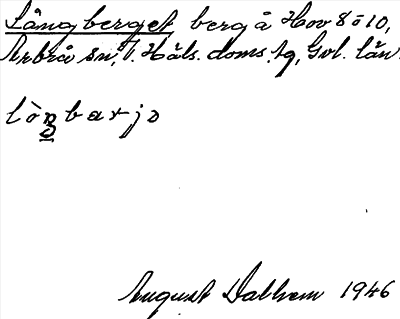 Långberget berg å Hov 8 o 10,
Arbrå sn, V. Häls. doms. tg, Gvl. län.
lòŋbarjə
August Dalhem 1946